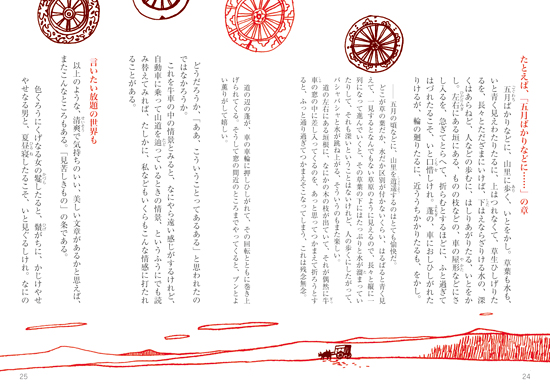 たとえば、「五月ばかりなどに……」の章
五月ばかりなどに、山里にありく、いとをかし。草葉も水も、
いと青く見えわたりたるに、上はつれなくて、草生ひしげりた
るを、長々とただざまにいけば、下はえならざりける水の、深
くはあらねど、人などの歩むに、はしりあがりたる、いとをか
し。左右にある垣にある、ものの枝などの、車の屋形などにさ
し入るを、急ぎてとらへて、折らむとするほどに、ふと過ぎて
はづれたるこそ、いと口惜しけれ。蓬の、車に押しひしがれた
りけるが、輪の廻りたるに、近ううちかかりたるも、をかし。
――五月の頃などに、山里を逍遥するのはとても愉快だ。
どこが草の葉だか、水だか区別が付かないくらい、はるばると青く見
えて、一見するとなんでもない草原のように見えるので、長々と縦に一
列になって進んでいくと、その草葉の下にはたっぷりと水が溜まってい
たりして、それも深いということはないけれど、人の歩くにしたがって、
パシャパシャと水が跳ね上がる、そういうのもまた楽しい。
道の左右にある垣根に、なにかの木の枝が出ていて、それが偶然に牛
車の窓の中に差し入ってくるのを、あっと思ってつかまえて折ろうとす
ると、ふっと通り過ぎてつかまえそこなってしまう、これは残念無念。
道の辺の蓬が、車の車輪に押しひしがれて、その回転とともに巻き上
げられてくる。そうして窓の間近のところまでやってくると、プンとよ
い薫りがして嬉しい。
どうだろうか、「ああ、こういうことってあるある」と思われたの
ではなかろうか。
これを牛車の中の情景とみると、なにやら遠い感じがするけれど、
自動車に乗って山道を辿っているときの情景、というふうにでも読
み替えてみれば、たしかに、私などもいくらもこんな情感に打たれ
ることがある。
言いたい放題の世界も
以上のような、清爽で気持ちのいい、美しい文章があるかと思えば、
またこんなところもある。「見苦しきもの」の条である。
色くろうにくげなる女の鬘したると、鬚がちに、かじけやせ
やせなる男と、夏昼寝したるこそ、いと見ぐるしけれ。なにの
25
24